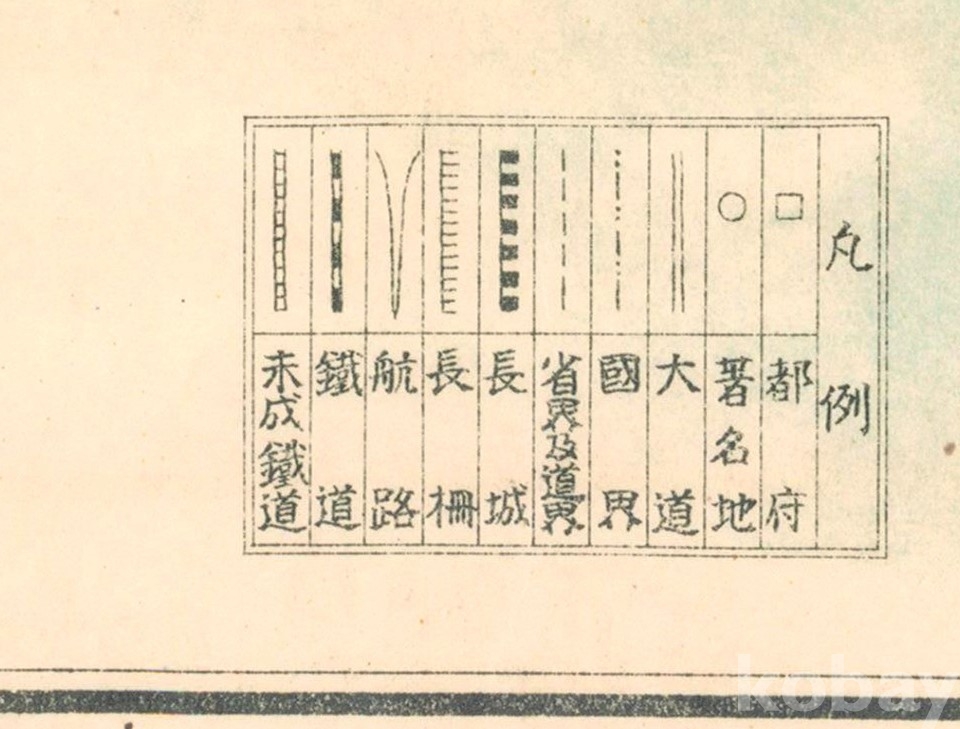 凡例
都府
著名地
大道
國界
省界及道界
長城
長柵
航路
鐵道
未成鐵道
kobay